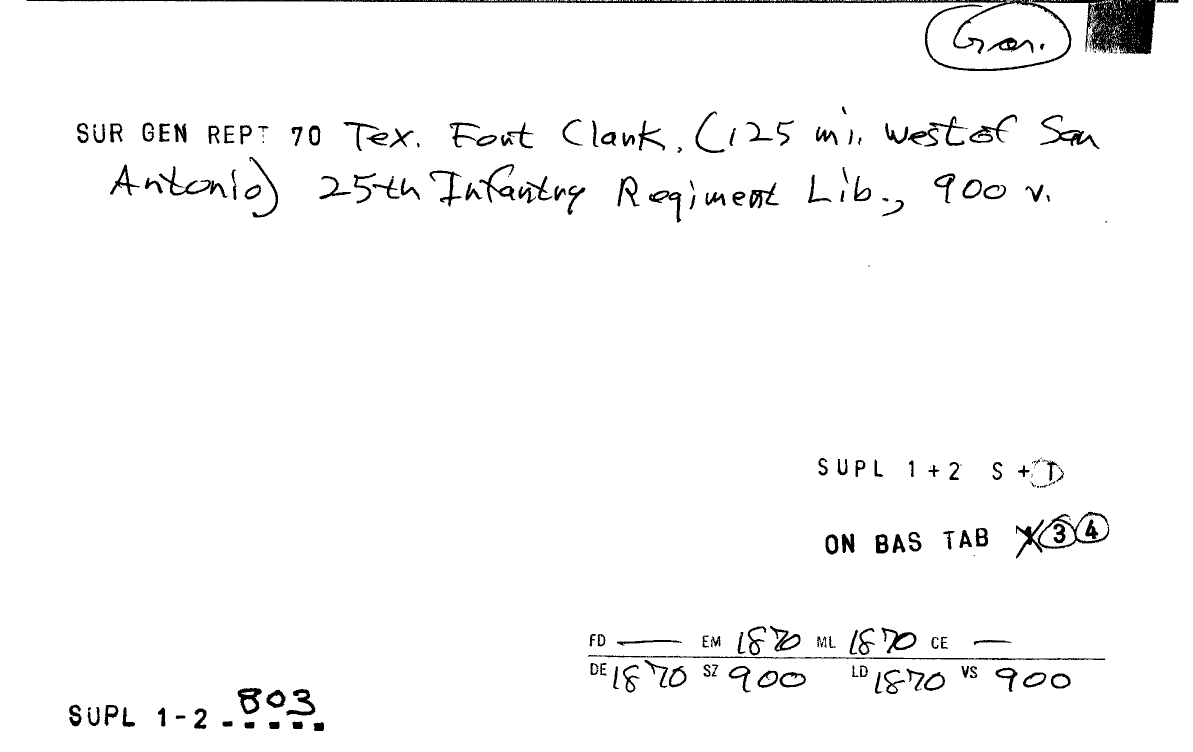 Gar.
SUR GEN REPT 70 Tex. Fort Clark, (125 mi. West of San
Antonio) 25th Infantry Regiment Lib., 900 v.
SUPL 1+2 S+T
ON BAS TAB 3 4
FD — EM 1870 ML 1870 CE —
DE 1870 SZ 900 LD 1870 VS 900
SUPL 1-2 803